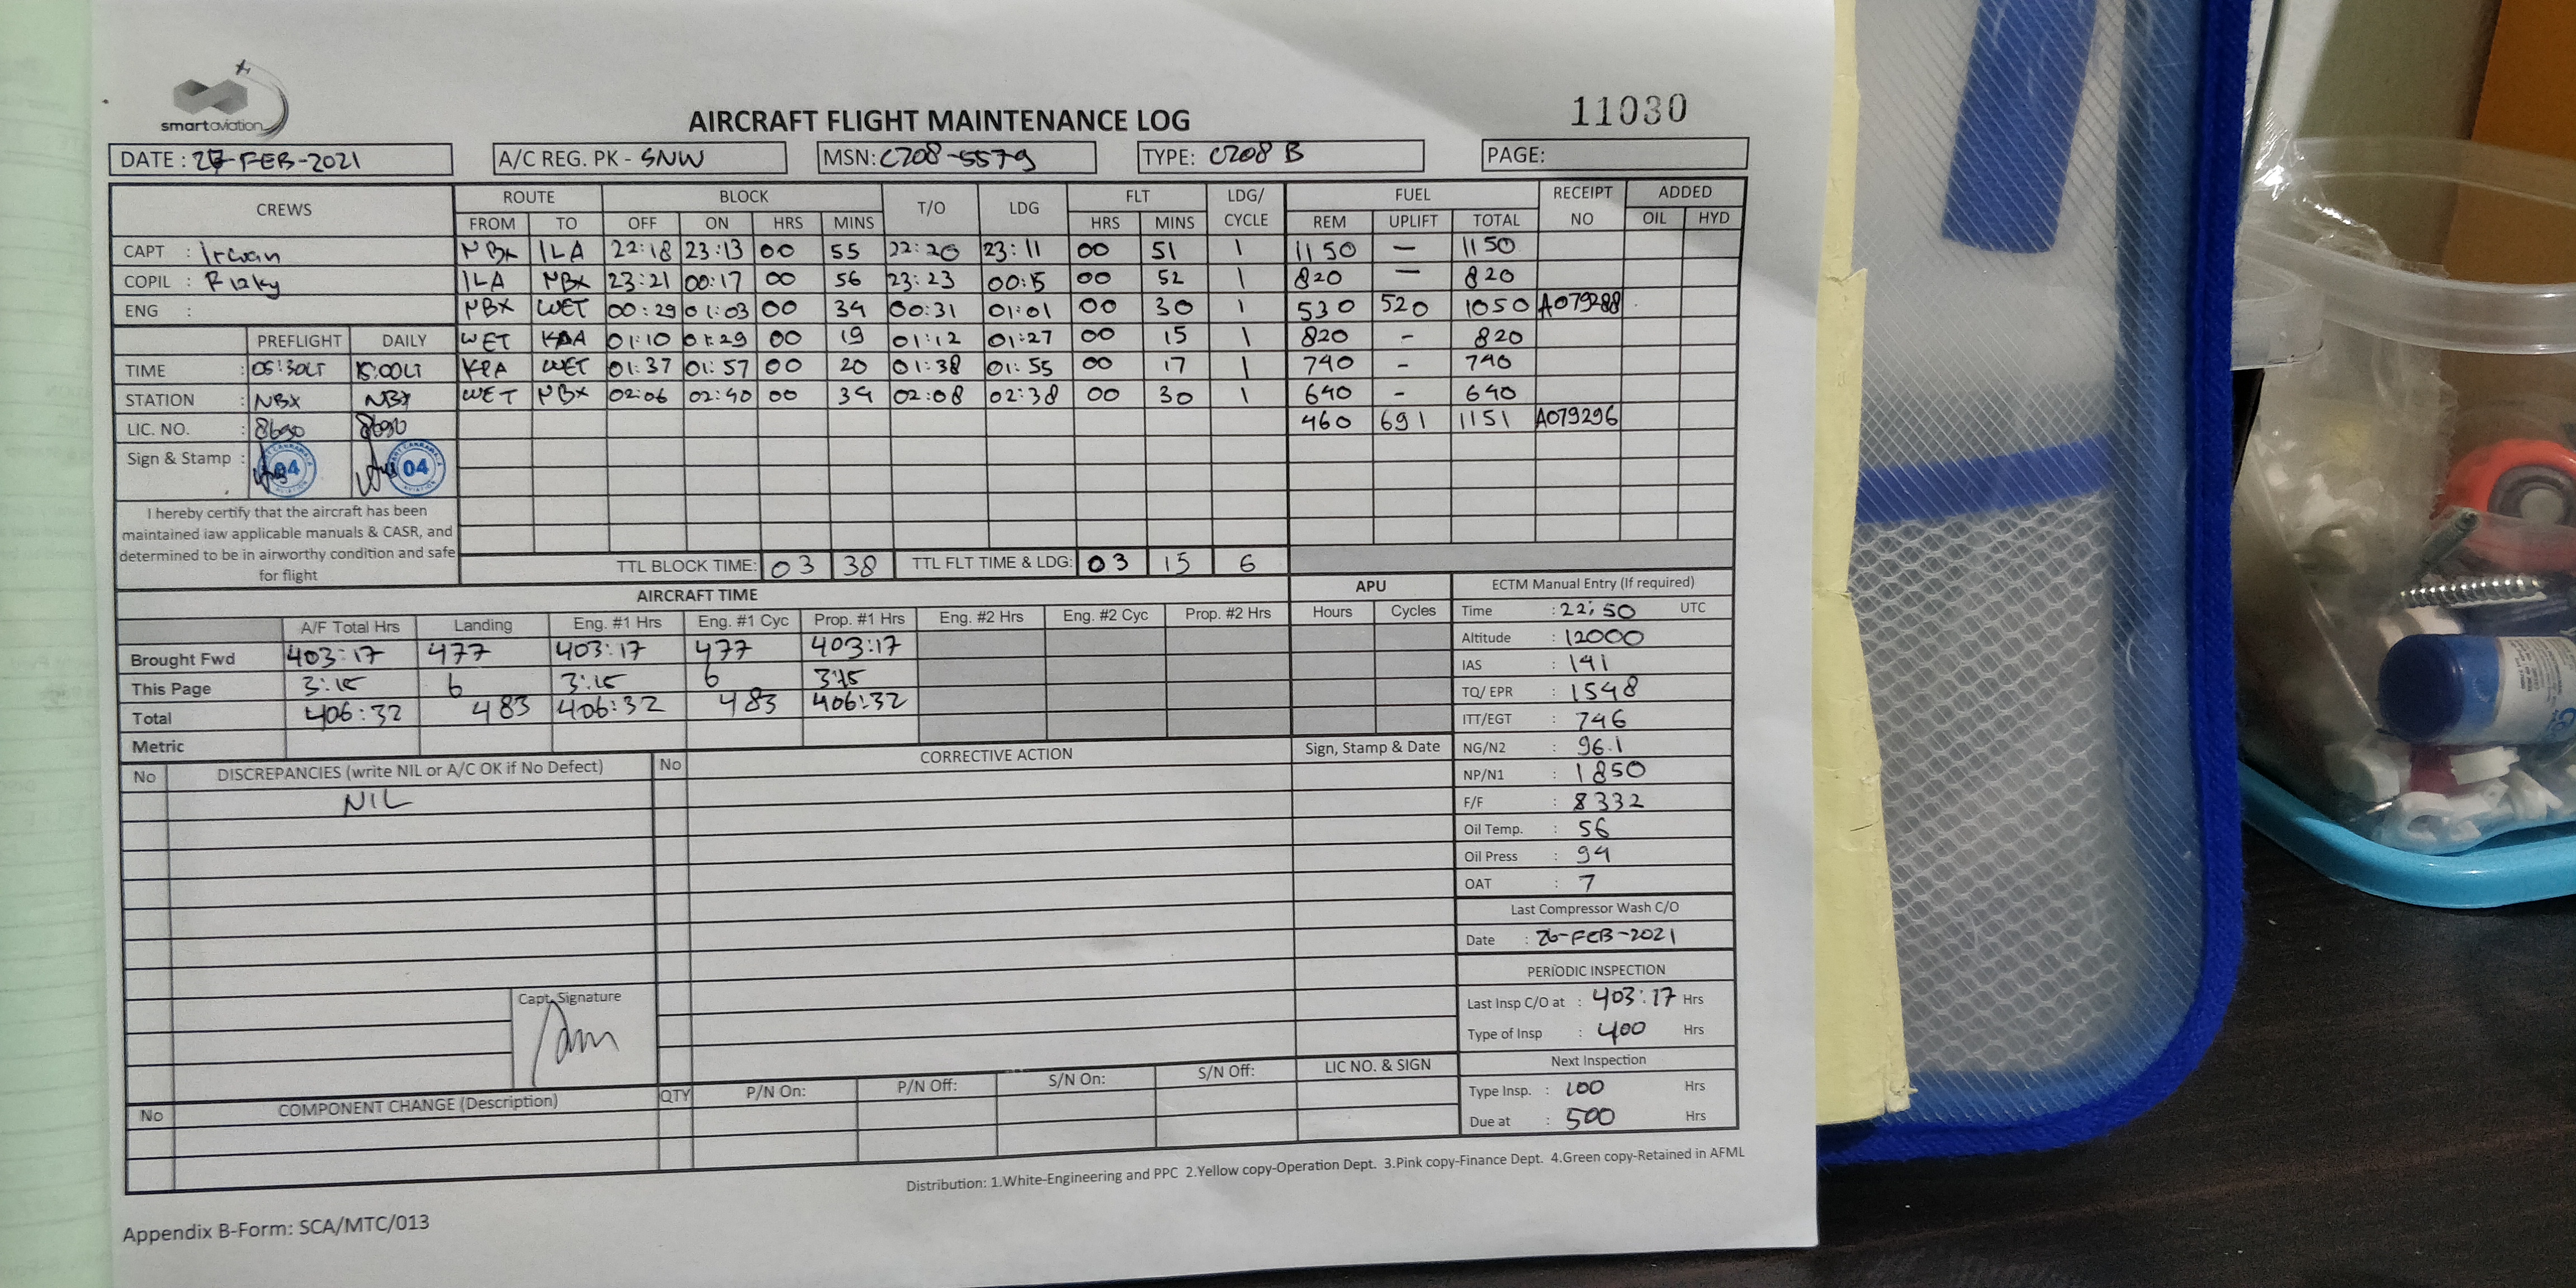 smartaviation
AIRCRAFT FLIGHT MAINTENANCE LOG
11030
DATE : 27-FEB-2021 A/C REG. PK - SNW MSN: C208-5579 TYPE: C208 B PAGE:
CREWS ROUTE BLOCK T/O LDG FLT LDG/ CYCLE FUEL RECEIPT NO ADDED
FROM TO OFF ON HRS MINS HRS MINS REM UPLIFT TOTAL OIL HYD
CAPT : Irwan NBX ILA 22:18 23:13 00 55 22:20 23:11 00 51 1 1150 — 1150
COPIL : Rizky ILA NBX 23:21 00:17 00 56 23:23 00:15 00 52 1 820 — 820
ENG : NBX WET 00:29 01:03 00 34 00:31 01:01 00 30 1 530 520 1050 A079288
PREFLIGHT DAILY WET 01:10 01:29 00 19 01:12 01:27 00 15 1 820 - 820
TIME : 05:30LT 15:00LT WET 01:37 01:57 00 20 01:38 01:55 00 17 1 740 - 740
STATION : NBX NBX WET NBX 02:06 02:40 00 34 02:08 02:38 00 30 1 640 - 640
LIC. NO. : 8690 8690 460 691 1151 A079296
Sign & Stamp : 04 04
AVIATION
I hereby certify that the aircraft has been
maintained iaw applicable manuals & CASR, and
determined to be in airworthy condition and safe
for flight
TTL BLOCK TIME: 03 38 TTL FLT TIME & LDG: 03 15 6
AIRCRAFT TIME APU
A/F Total Hrs Landing Eng. #1 Hrs Eng. #1 Cyc Prop. #1 Hrs Eng. #2 Hrs Eng. #2 Cyc Prop. #2 Hrs Hours Cycles
Brought Fwd 403:17 477 403:17 477 403:17
This Page 3:15 6 3:15 6 3:15
Total 406:32 483 406:32 483 406:32
Metric
ECTM Manual Entry (If required)
Time : 22:50 UTC
Altitude : 12000
IAS : 141
TQ/ EPR : 1548
ITT/EGT : 746
NG/N2 : 96.1
NP/N1 : 1850
F/F : 8332
Oil Temp. : 56
Oil Press : 94
OAT : 7
Last Compressor Wash C/O
Date : 26-FEB-2021
PERIODIC INSPECTION
Last Insp C/O at : 403:17 Hrs
Type of Insp : 400 Hrs
Next Inspection
Type Insp. : 100 Hrs
Due at : 500 Hrs
No DISCREPANCIES (write NIL or A/C OK if No Defect) No CORRECTIVE ACTION Sign, Stamp & Date
NIL
Capt. Signature
No COMPONENT CHANGE (Description) QTY P/N On: P/N Off: S/N On: S/N Off: LIC NO. & SIGN
Distribution: 1.White-Engineering and PPC 2.Yellow copy-Operation Dept. 3.Pink copy-Finance Dept. 4.Green copy-Retained in AFML
Appendix B-Form: SCA/MTC/013